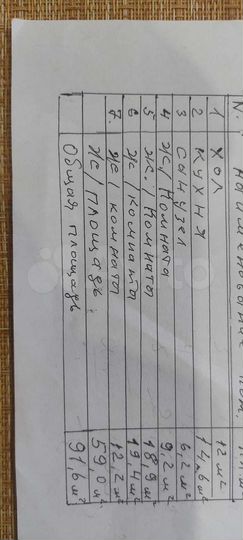 N. Наименование пом.
1 Хол 12 м²
2 Кухня 14,6 м²
3 Санузел 6,2 м²
4 ж/комната 9,2 м²
5 ж/комната 18,9 м²
6 ж/комната 19,4 м²
7. ж/комната 12,2 м²
ж/площадь 59,0 м²
Общая площадь 91,6 м²